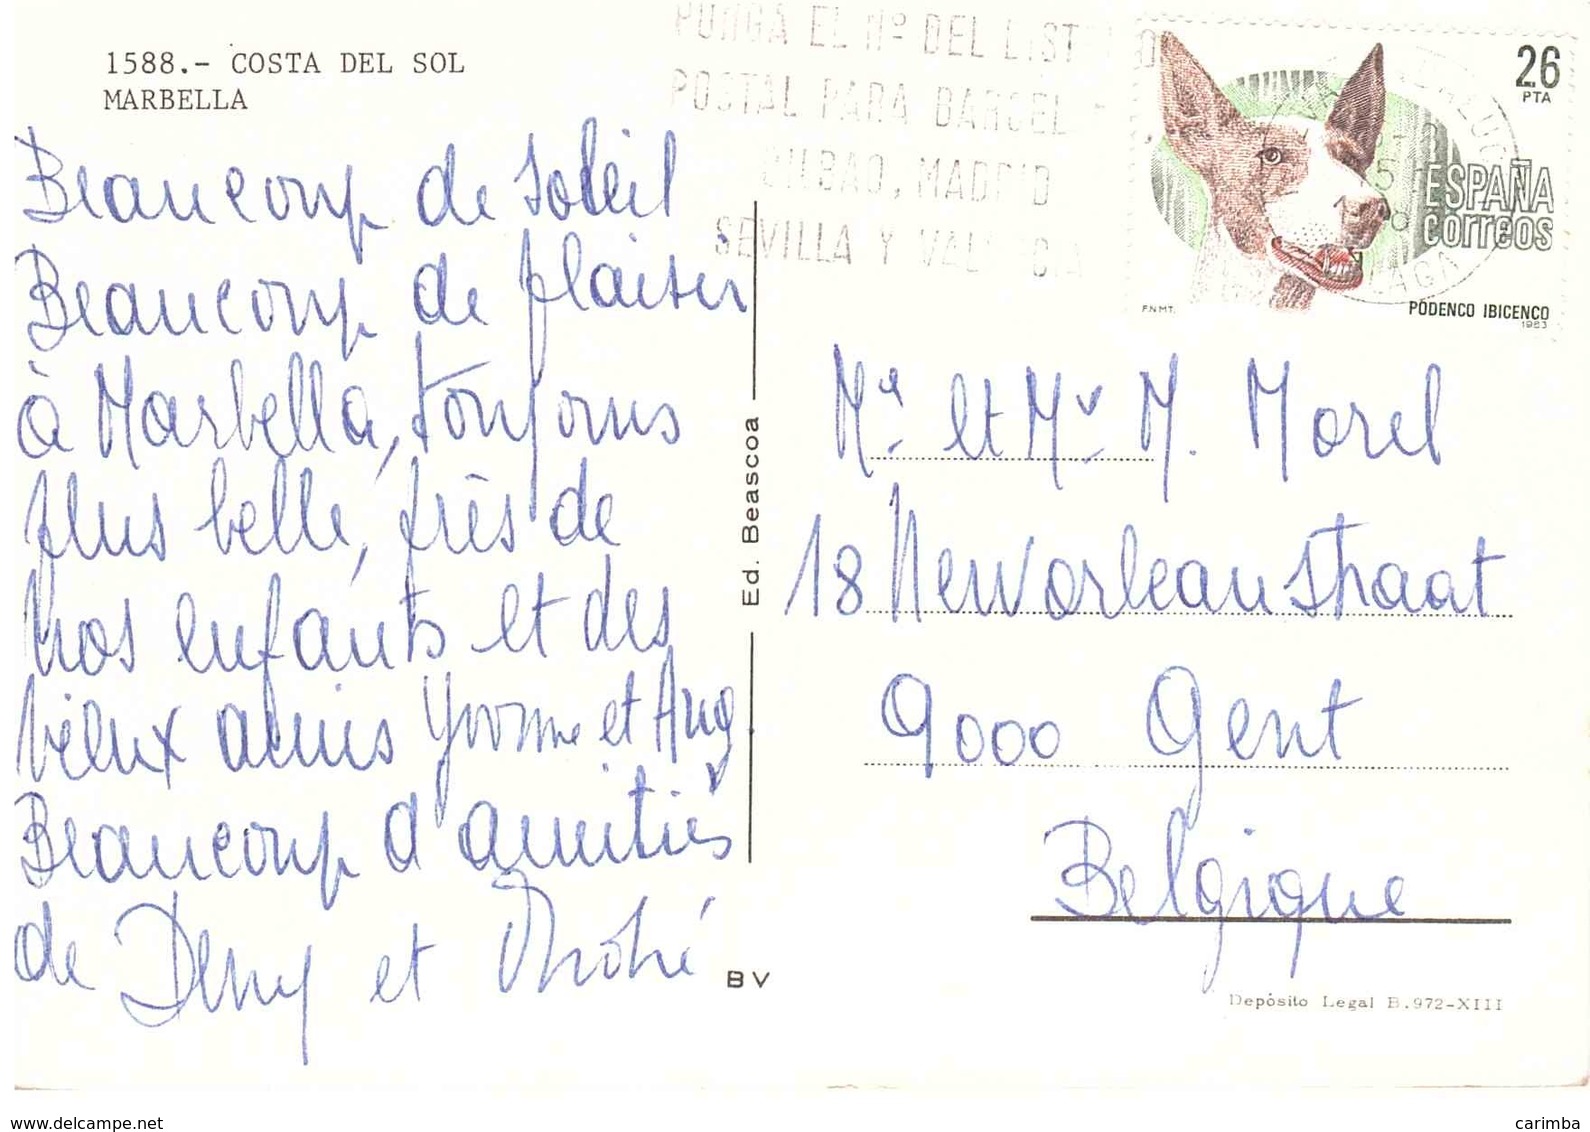 1588.- COSTA DEL SOL
MARBELLA
Beaucoup de soleil
Beaucoup de plaisir
à Marbella, toujours
plus belle, près de
nos enfants et des
vieux amis Yvonne et Aug
Beaucoup d'amitiés
de Deny et
PONGA EL Nº DEL LISTADO
POSTAL PARA BARCEL
BILBAO, MADRID
SEVILLA Y VAL CIA
26
PTA
ESPAÑA
correos
F.N.M.T.
PODENCO IBICENCO
1983
Ed. Beascoa
BV
Me et Mr M. Morel
18 Neworleanstraat
9000 Gent
Belgique
Depósito Legal B.972-XIII
www.delcampe.net
carimba